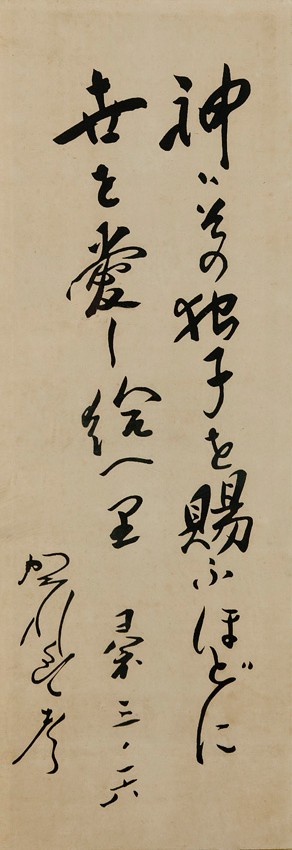 神ハその独子を賜ふほどに
世を愛し給へ里 ヨハネ三・一六
賀川豊彦